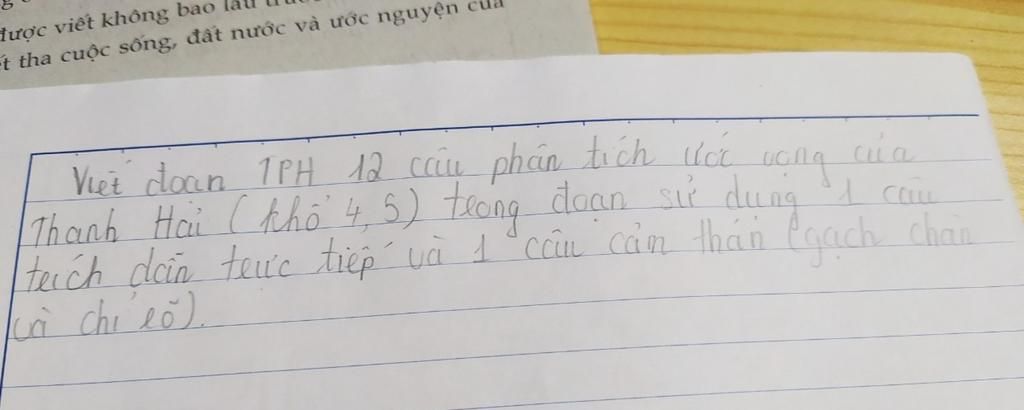 được viết không bao lâu
t tha cuộc sống, đất nước và ước nguyện của
Viết đoạn TPH 12 câu phân tích ước vọng của
Thanh Hải (khổ 4, 5) trong đoạn sử dụng 1 câu
trích dẫn trực tiếp và 1 câu cảm thán (gạch chân
và chỉ rõ).